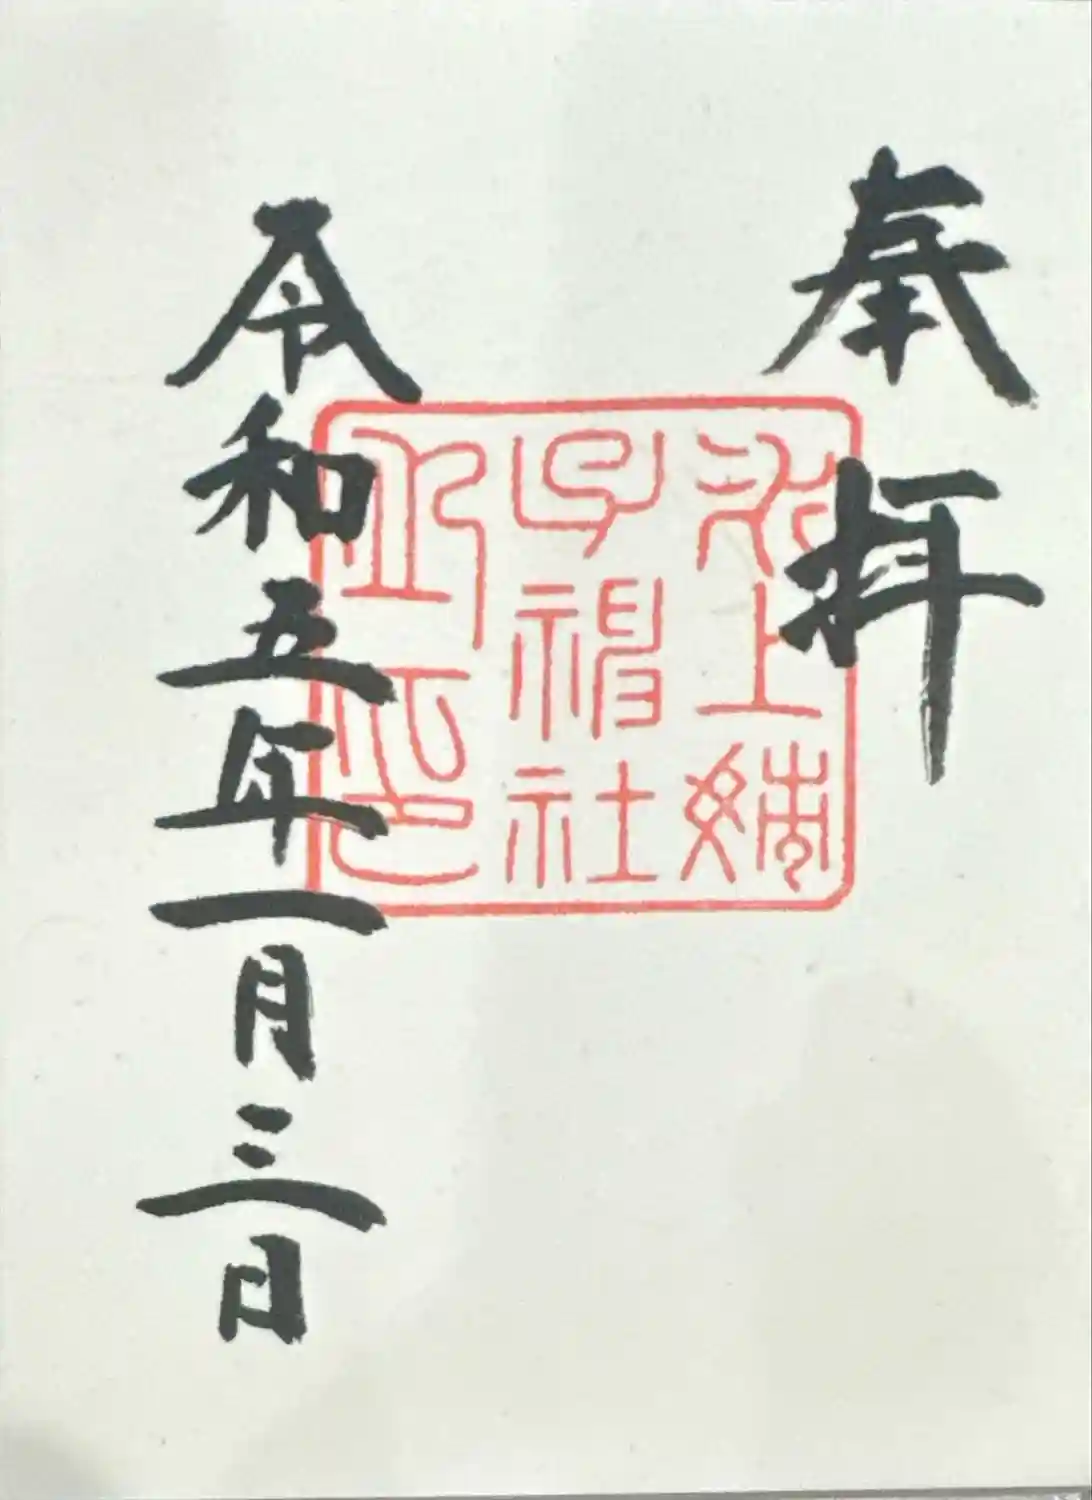 奉拝
氷上姉
子神社
令和五年一月三日